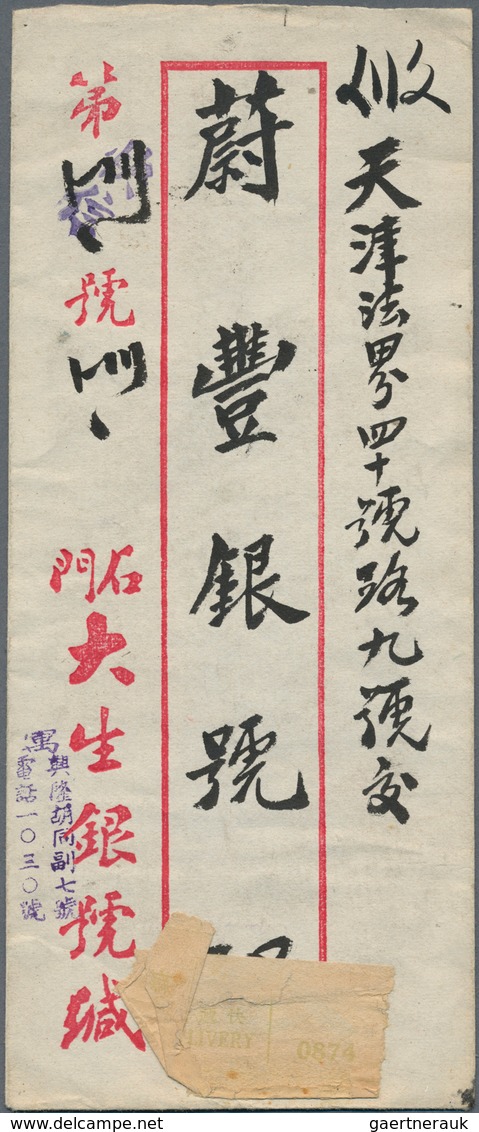 天津法界四十號路九號交
蔚豐銀號
第 號
石門
大生銀號緘
寓興隆胡同副七號
電話一〇三〇號
LIVERY
0874
gaertnerauk